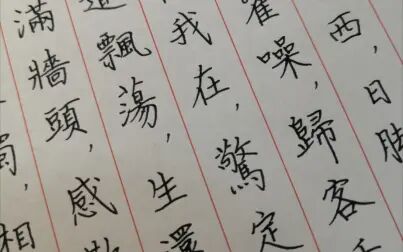 西，日腳
雀噪，歸客
我在，驚定
飄蕩，生還
滿牆頭，感
燭，相